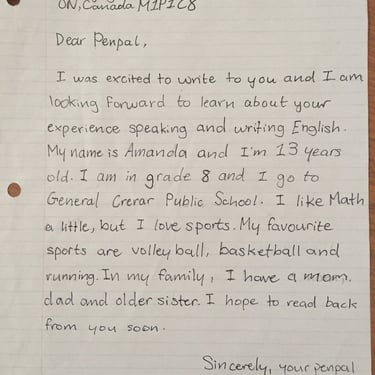 ON, Canada M1P1C8
Dear Penpal,
I was excited to write to you and I am
looking forward to learn about your
experience speaking and writing English.
My name is Amanda and I'm 13 years
old. I am in grade 8 and I go to
General Crerar Public School. I like Math
a little, but I love sports. My favourite
sports are volleyball, basketball and
running. In my family, I have a mom,
dad and older sister. I hope to read back
from you soon.
Sincerely, your penpal